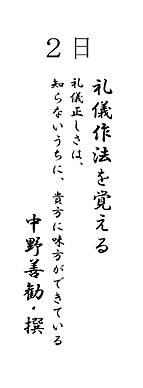 ２日
礼儀作法を覚える
礼儀正しさは、
知らないうちに、貴方に味方ができている
中野善勧・撰